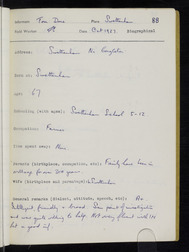 Informant Tom Done Place Swettenham 88
Field Worker Date Oct 1951 Biographical
Address: Swettenham Nr. Congleton
Born at: Swettenham
Age: 67
Schooling (with ages): Swettenham School 5-12
Occupation: Farmer
Time spent away: Nine
Parents (birthplace, occupation, etc): Family have been in
for 300 years
Wife (birthplace and parentage): Swettenham
General remarks (dialect, attitude, speech, etc) An
intelligent, friendly & broad. Saw point of investigation
and was quite willing to help. Not very fluent with
but a good